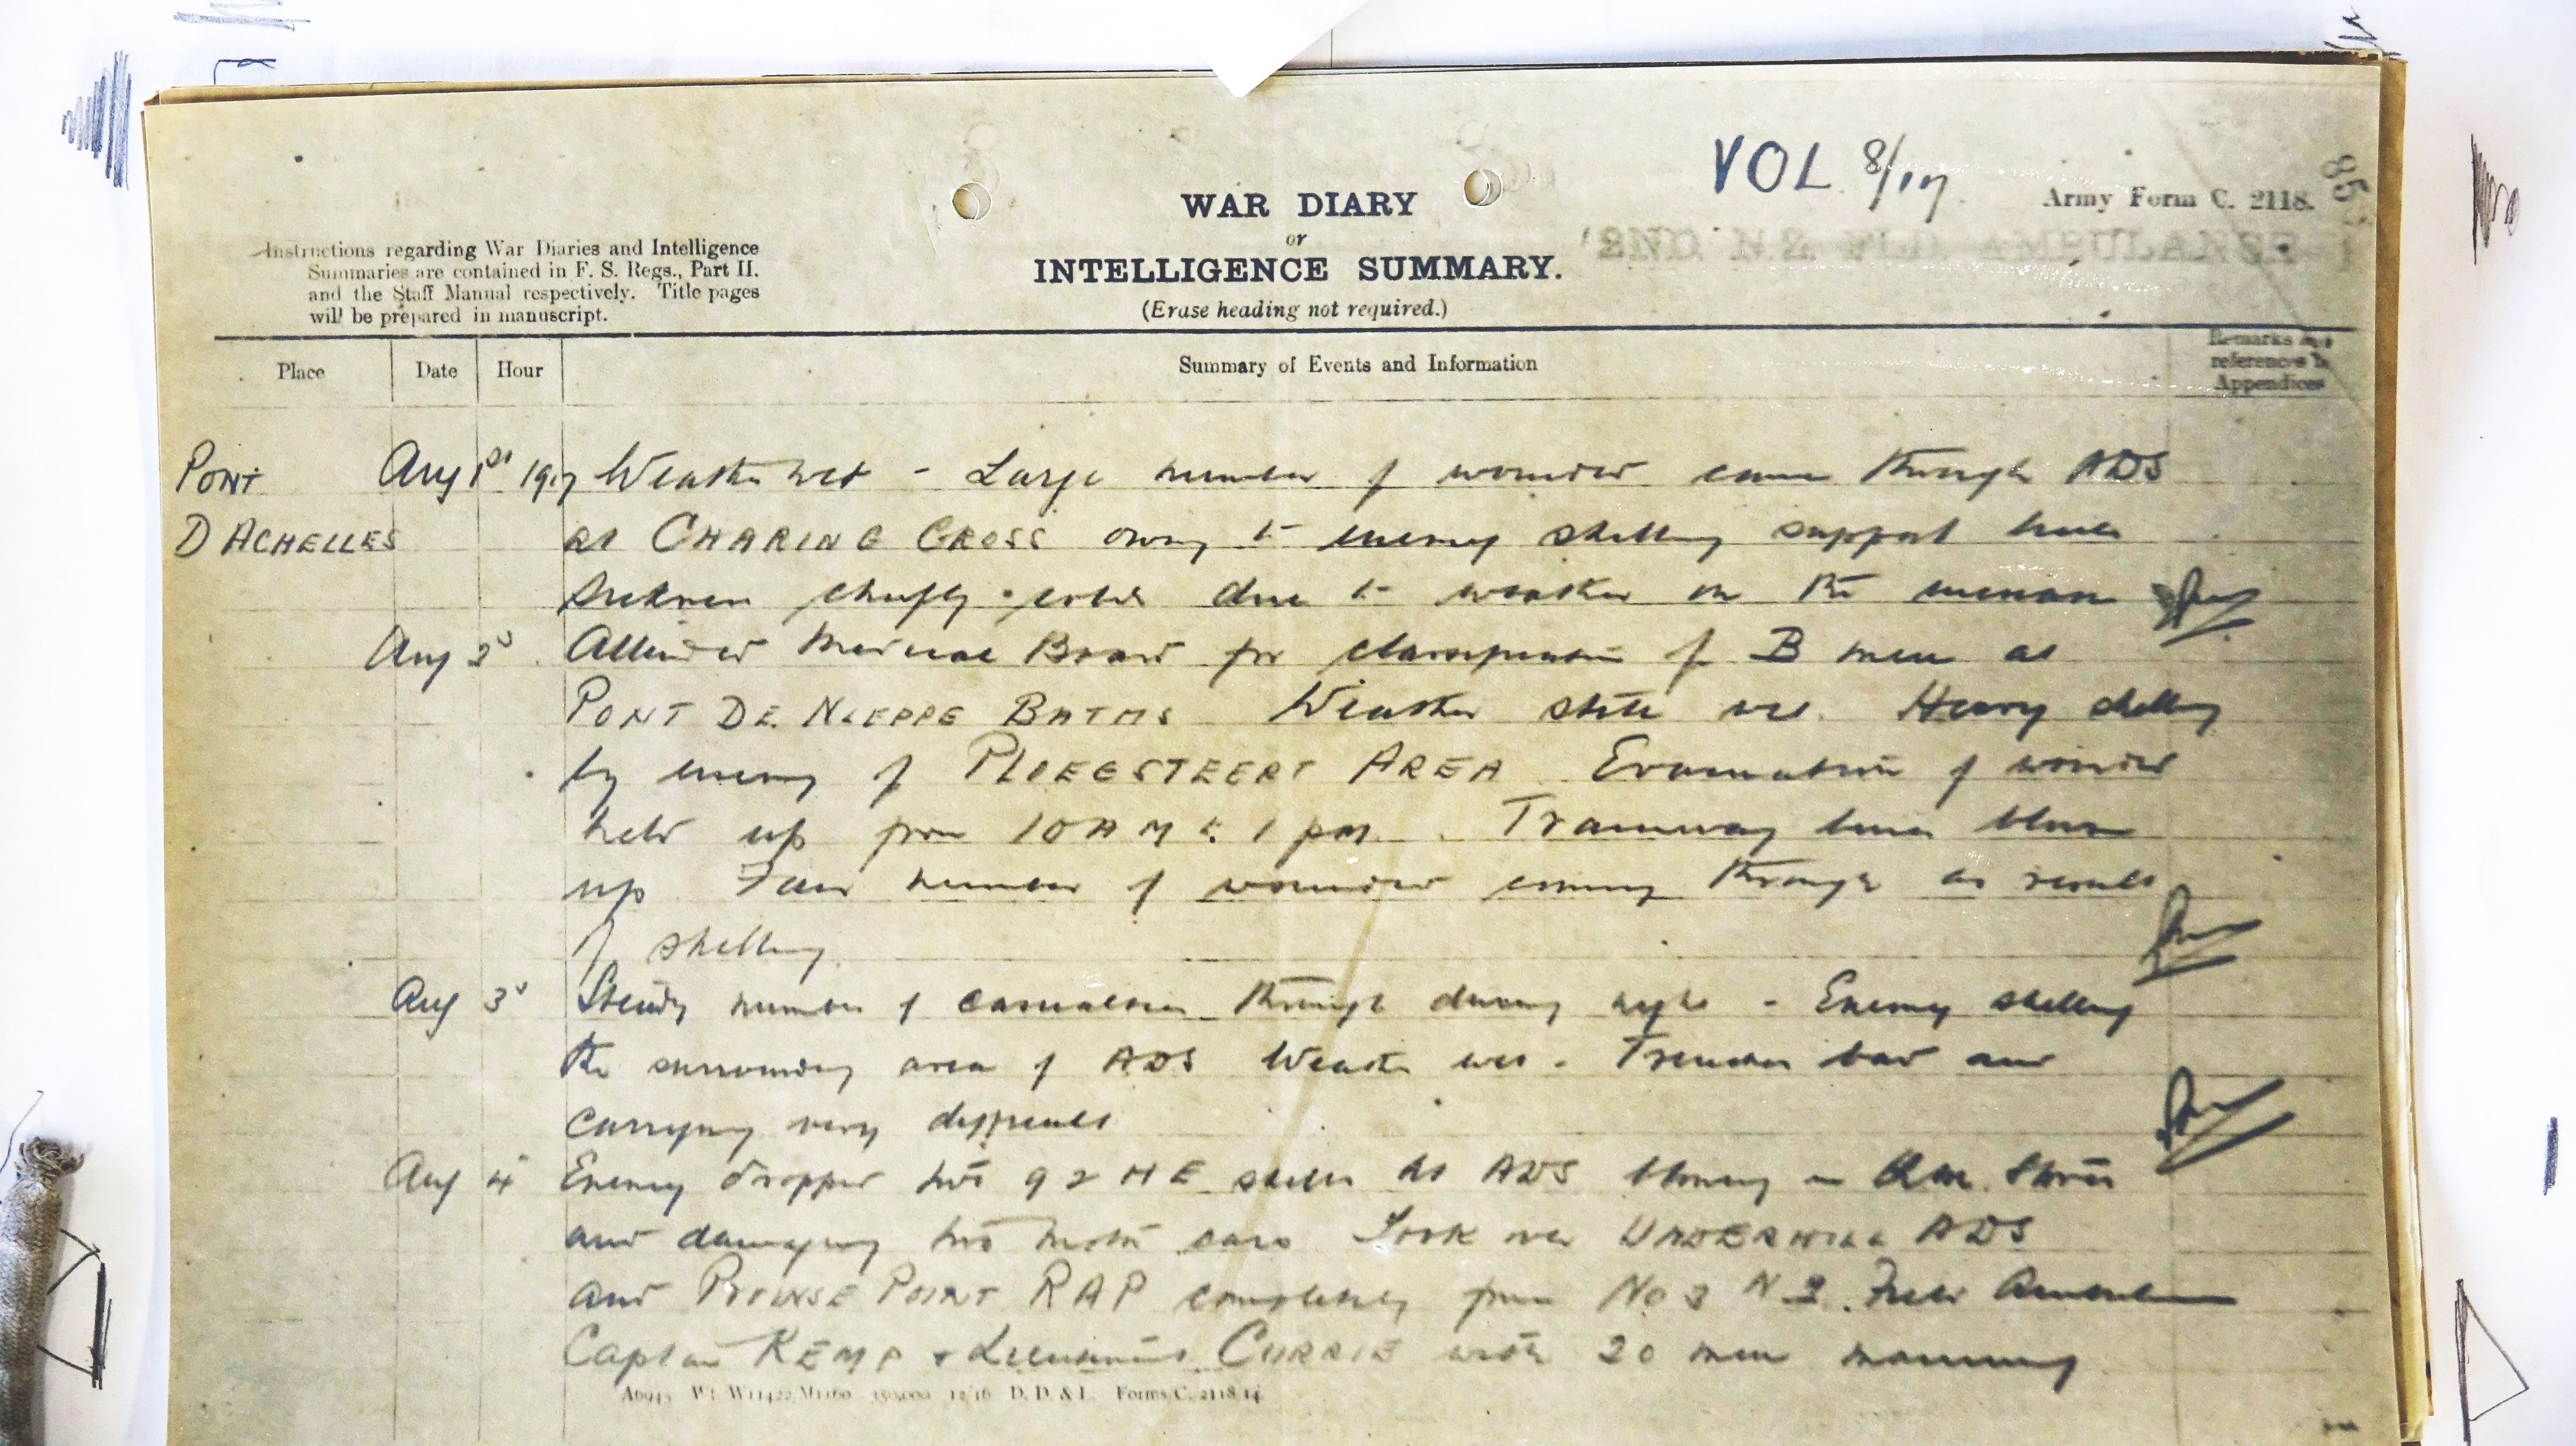 VOL 8/17
Army Form C. 2118.
85
WAR DIARY
or
INTELLIGENCE SUMMARY.
(Erase heading not required.)
Instructions regarding War Diaries and Intelligence
Summaries are contained in F. S. Regs., Part II.
and the Staff Manual respectively. Title pages
will be prepared in manuscript.
Place Date Hour Summary of Events and Information Remarks and
references to
Appendices
PONT Aug 1st 1917 Weather wet - Large number of wounded came through ADS
D ACHELLES at CHARING CROSS owing to enemy shelling support lines
Sickness chiefly colds due to weather on the increase
Aug 2d Attended Medical Board for classification of B men at
PONT DE NIEPPE BATHS Weather still wet. Heavy shelling
by enemy of PLOEGSTEERT AREA Evacuation of wounded
held up from 10 AM to 1 pm. Tramway lines blown
up Fair number of wounded coming through as result
of shelling.
Aug 3d Steady number of casualties through during night - Enemy shelling
the surrounding area of ADS Weather wet - Trenches bad and
carrying very difficult
Aug 4 Enemy dropped two 9 2 HE shells at ADS blowing in Stores
and damaging two motor cars Took over UNDERHILL ADS
and PROWSE POINT RAP completely from No 3 N.Z. Field Ambulance
Captain KEMP + Lieutenant CURRIE with 20 men manning
Forms/C. 2118/14